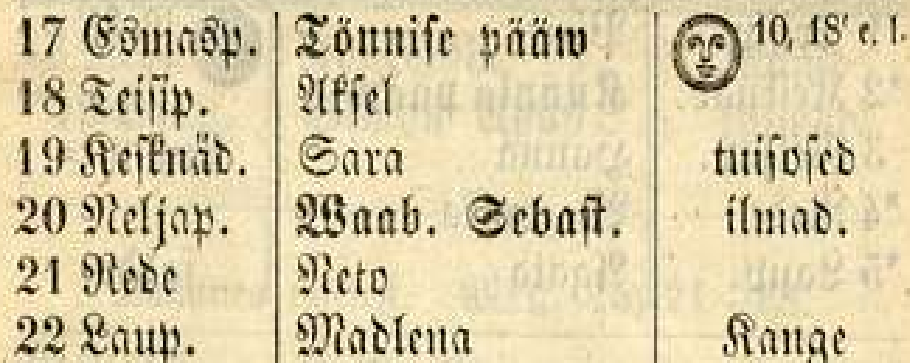 17 Esmasp. Tönnise pääw 10, 18' e. l.
18 Teisip. Aksel
19 Kesknäd. Sara tuisosed
20 Neljap. Waab. Sebast. ilmad.
21 Rede Neto
22 Laup. Madlena Kange